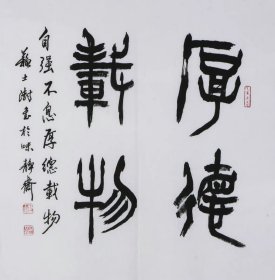 厚德
載物
自强不息厚德載物
蘇士澍書於味靜齋